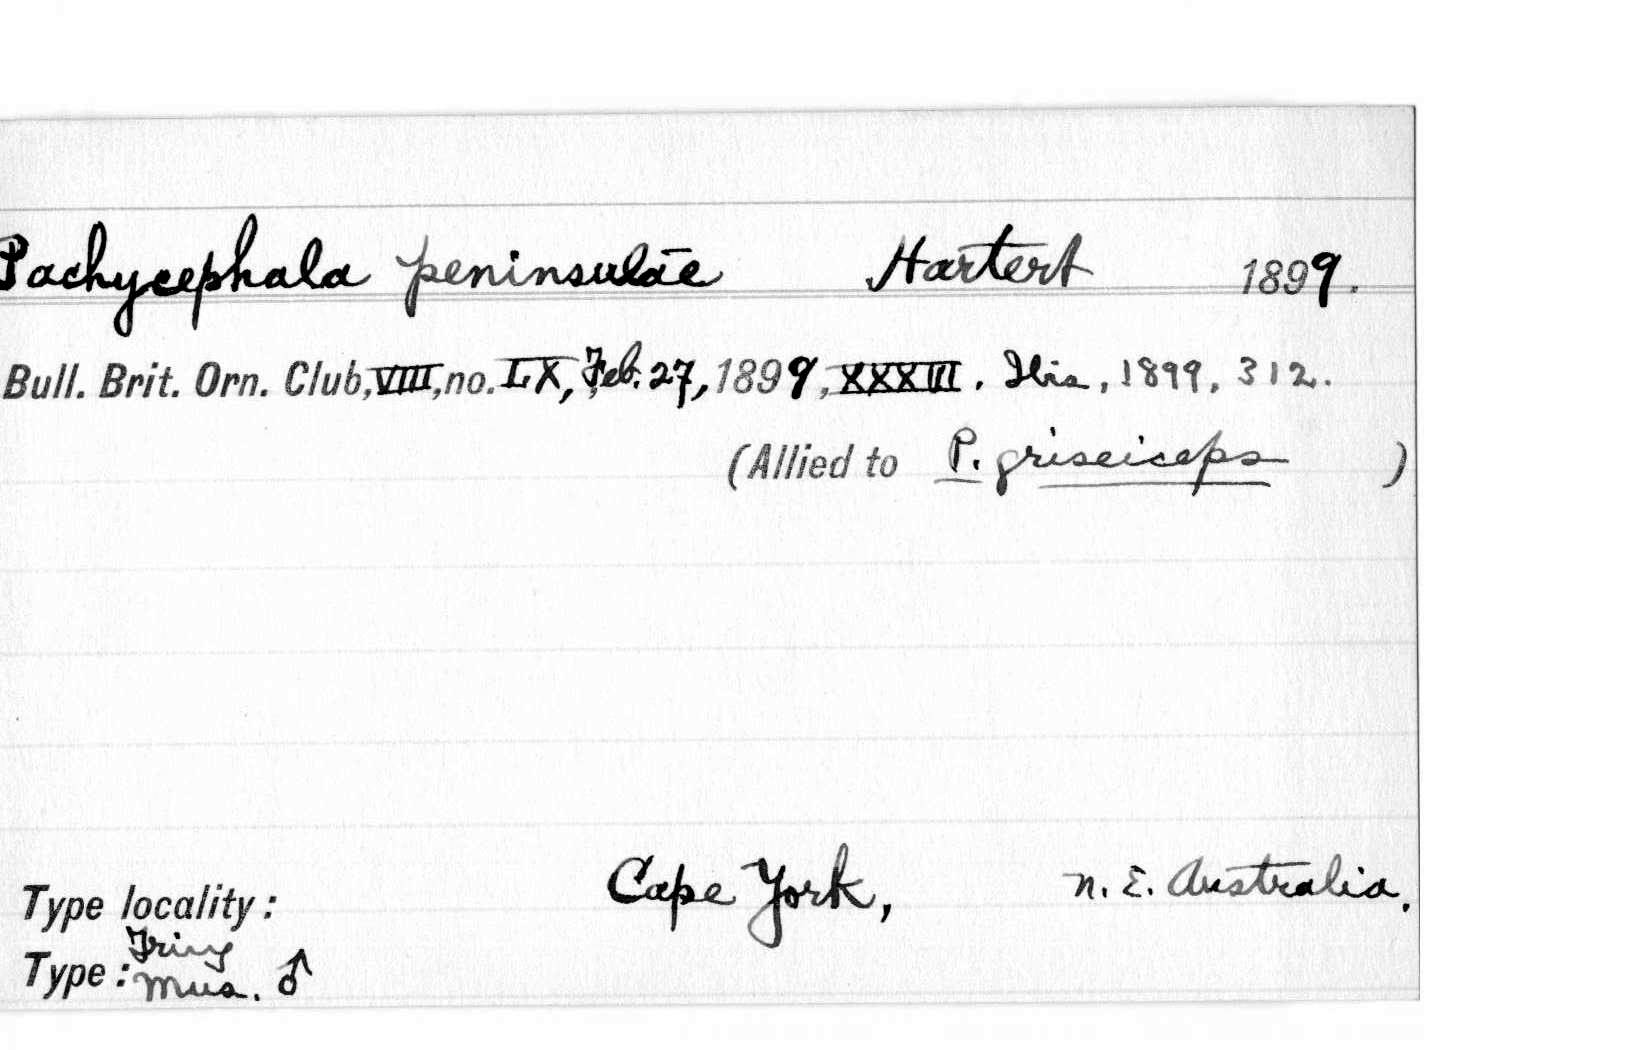 Pachycephala peninsulae Hartert 1899.
Bull. Brit. Orn. Club, VIII, no. LX, Feb. 27, 1899, XXXVI. Ibis, 1899, 312.
(Allied to P. griseiceps )
Type locality: Cape York, N. E. Australia.
Type: Tring
Mus. ♂